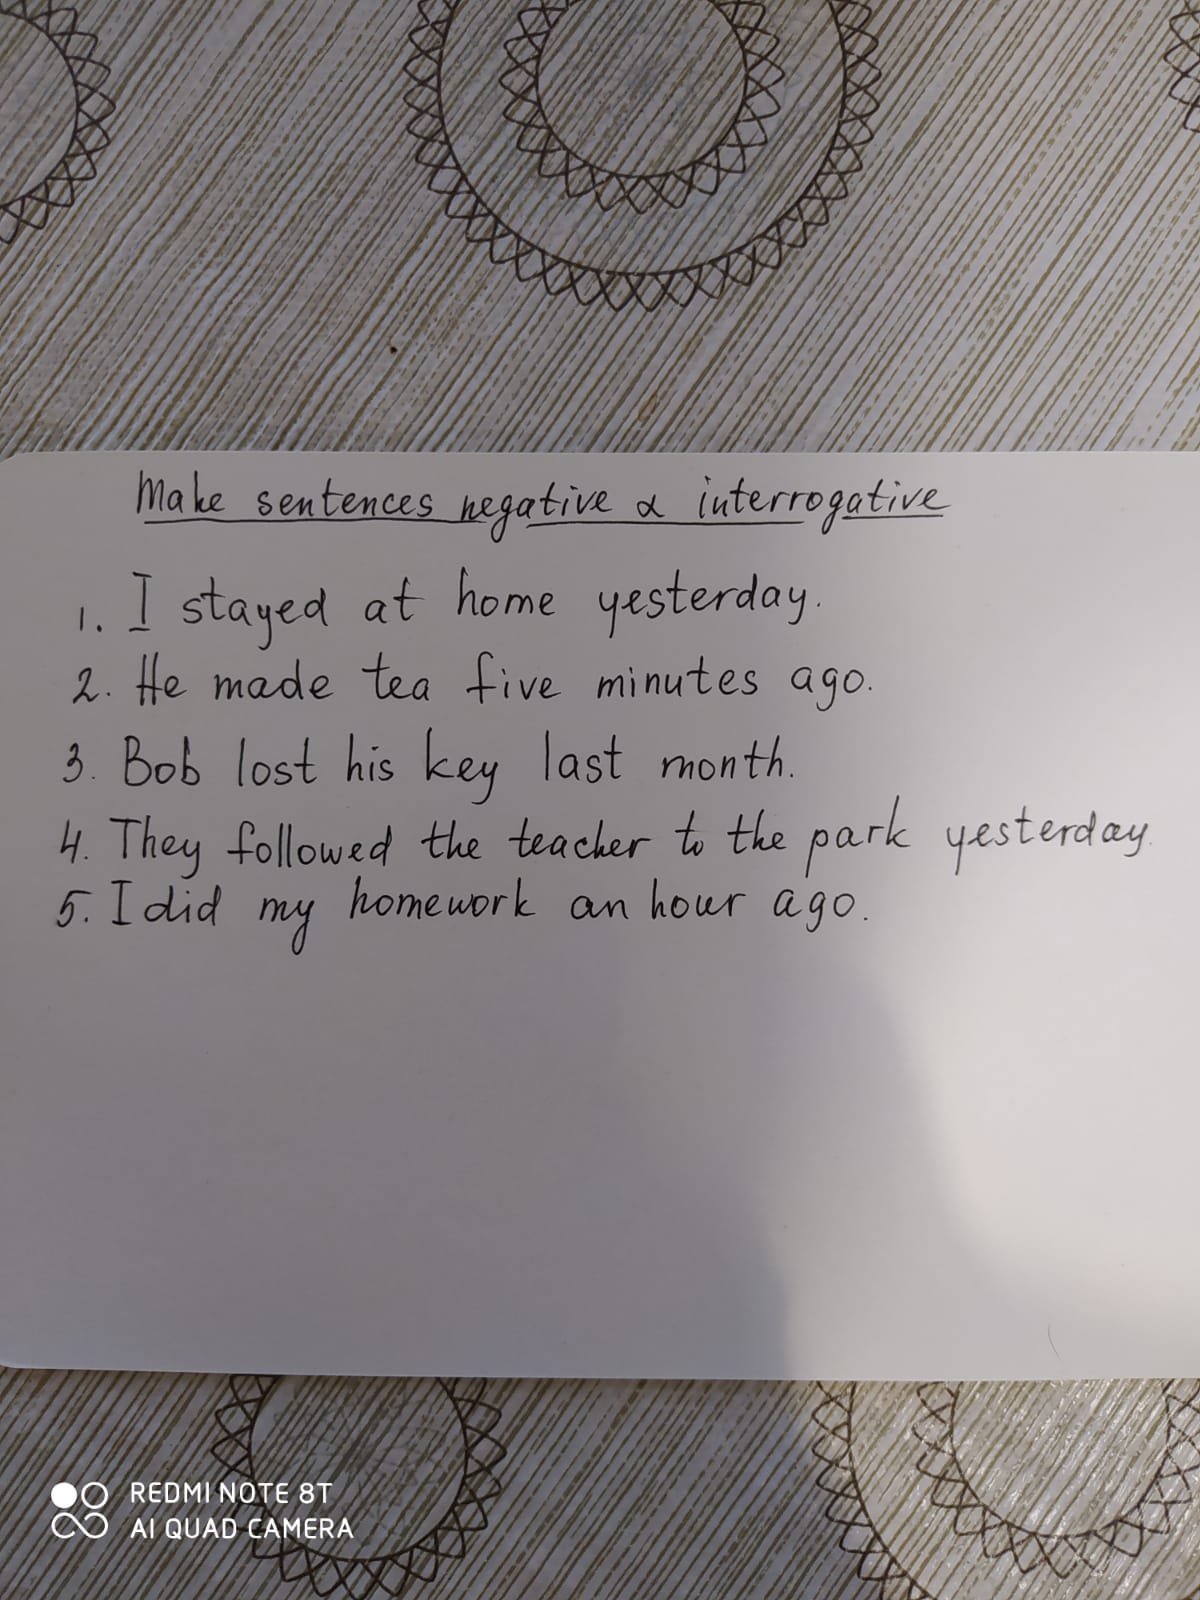 Make sentences negative & interrogative
1. I stayed at home yesterday.
2. He made tea five minutes ago.
3. Bob lost his key last month.
4. They followed the teacher to the park yesterday.
5. I did my homework an hour ago.
REDMI NOTE 8T
AI QUAD CAMERA